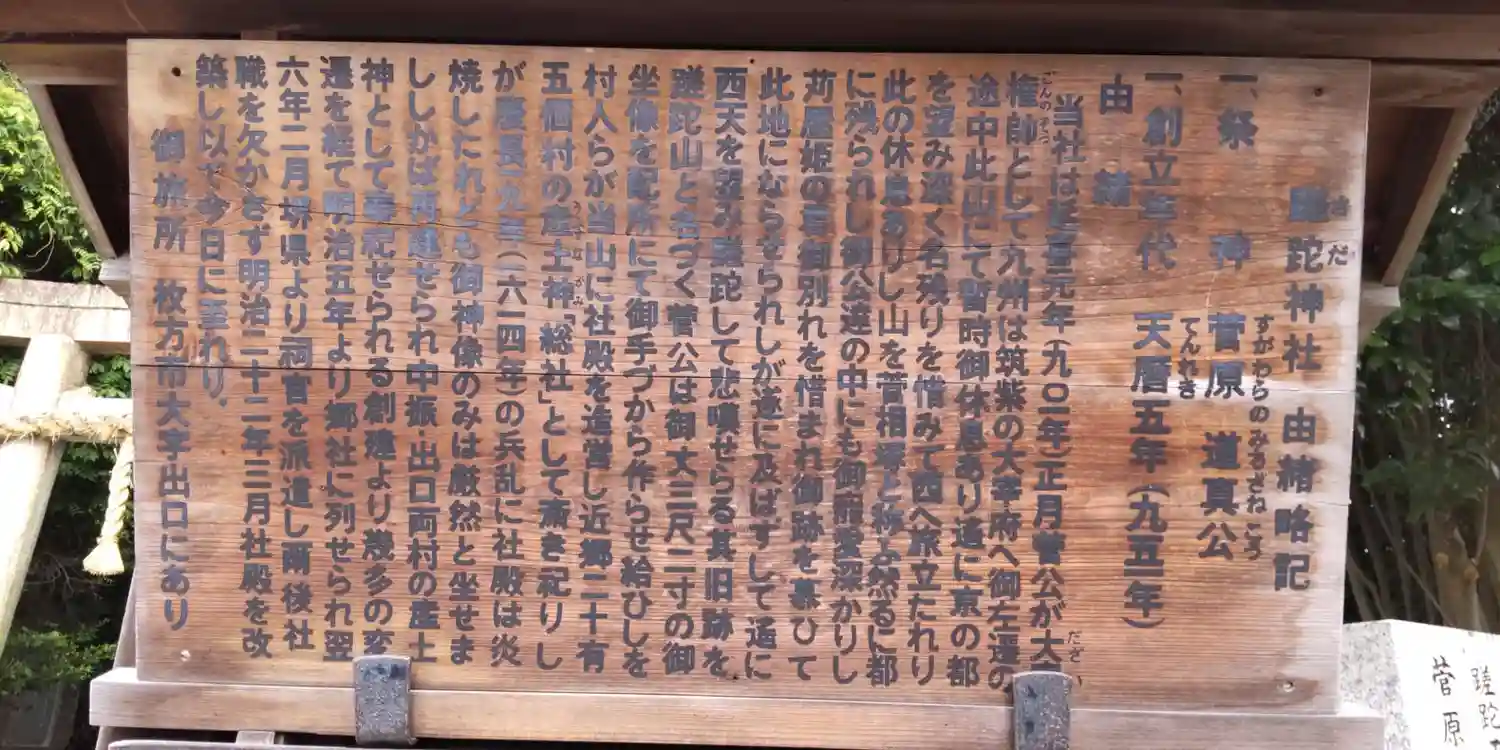 蹉跎神社 由緒略記
さだ
一、祭 神 菅原 道真公
すがわらのみちざねこう
一、創立年代 天暦五年(九五一年)
てんれき
由 緒
当社は延喜元年(九〇一年)正月菅公が大宰
だざい
権帥として九州は筑紫の大宰府へ御左遷の
ごんのそつ
途中此山にて暫時御休息あり遙に京の都
を望み深く名残りを惜みて西へ旅立たれり
此の休息ありし山を菅相塚と称ふ然るに都
に残られし御公達の中にも御寵愛深かりし
苅屋姫の君御別れを惜まれ御跡を慕ひて
此地にならせられしが遂に及ばずして遙に
西天を望み蹉跎して悲嘆せらる其旧跡を
蹉跎山と名づく菅公は御丈三尺二寸の御
坐像を配所にて御手づから作らせ給ひしを
村人らが当山に社殿を造営し近郷二十有
五個村の産土神「総社」として斎き祀りし
うぶすながみ
が慶長九年(一六一四年)の兵乱に社殿は炎
焼したれども御神像のみは厳然と坐せま
ししかば再建せられ中振・出口両村の産土
神として奉祀せられる創建より幾多の変
遷を経て明治五年より郷社に列せられ翌
六年二月堺県より祠官を派遣し爾後社
職を欠かさず明治二十二年三月社殿を改
築し以て今日に至れり、
御旅所 枚方市大字出口にあり
蹉跎
菅原